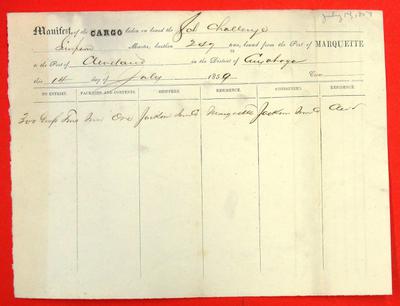 Manifest of the CARGO taken on board the Sch Challenge
Simpson Master, burthen 249 tons, bound from the Port of MARQUETTE
to the Port of Cleveland in the District of Cuyahoga
this 14 day of July 1859
NO. ENTRIES. PACKAGES AND CONTENTS. SHIPPERS. RESIDENCE. CONSIGNEES. RESIDENCE.
Tons Iron Ore Jackson Marquette Jackson